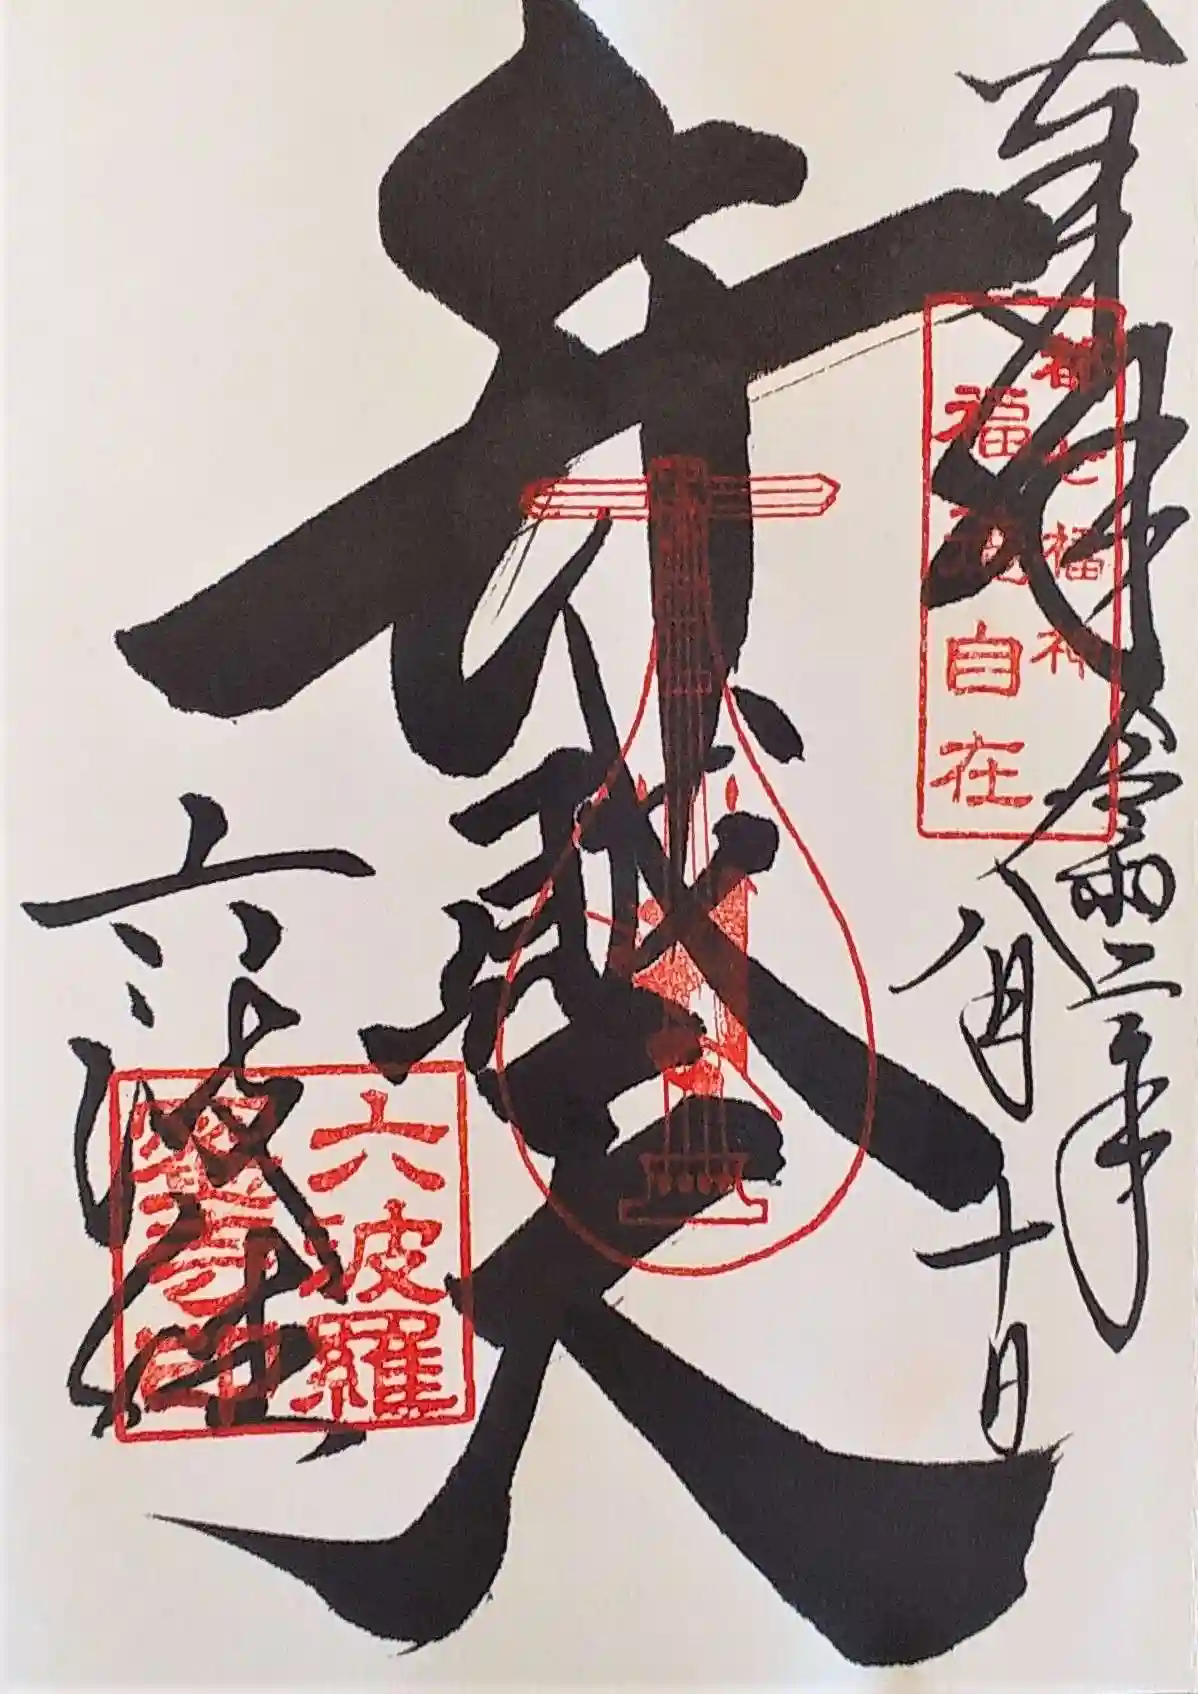 奉拝 令和二年
八月十日
都七福神
福徳自在
弁財天
六波羅
六波羅
蜜寺印